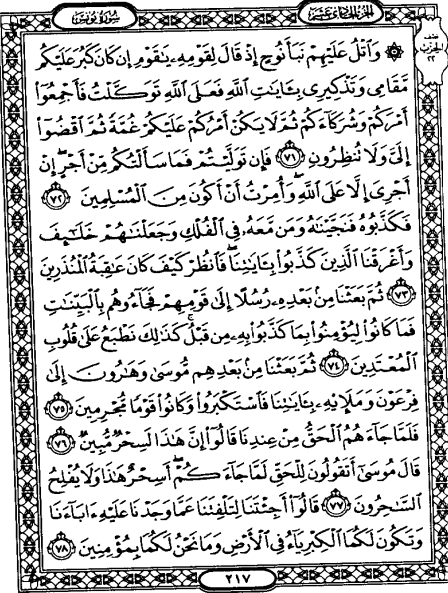 سُورَةُ يُونُسَ
الجزء الحادي عشر
نصف
الحزب
٢٢
۞ وَاتْلُ عَلَيْهِمْ نَبَأَ نُوحٍ إِذْ قَالَ لِقَوْمِهِۦ يَٰقَوْمِ إِن كَانَ كَبُرَ عَلَيْكُم
مَّقَامِى وَتَذْكِيرِى بِـَٔايَٰتِ ٱللَّهِ فَعَلَى ٱللَّهِ تَوَكَّلْتُ فَأَجْمِعُوٓا۟
أَمْرَكُمْ وَشُرَكَآءَكُمْ ثُمَّ لَا يَكُنْ أَمْرُكُمْ عَلَيْكُمْ غُمَّةً ثُمَّ ٱقْضُوٓا۟
إِلَىَّ وَلَا تُنظِرُونِ ﴿٧١﴾ فَإِن تَوَلَّيْتُمْ فَمَا سَأَلْتُكُم مِّنْ أَجْرٍ ۖ إِنْ
أَجْرِىَ إِلَّا عَلَى ٱللَّهِ ۖ وَأُمِرْتُ أَنْ أَكُونَ مِنَ ٱلْمُسْلِمِينَ ﴿٧٢﴾
فَكَذَّبُوهُ فَنَجَّيْنَٰهُ وَمَن مَّعَهُۥ فِى ٱلْفُلْكِ وَجَعَلْنَٰهُمْ خَلَٰٓئِفَ
وَأَغْرَقْنَا ٱلَّذِينَ كَذَّبُوا۟ بِـَٔايَٰتِنَا ۖ فَٱنظُرْ كَيْفَ كَانَ عَٰقِبَةُ ٱلْمُنذَرِينَ
﴿٧٣﴾ ثُمَّ بَعَثْنَا مِنۢ بَعْدِهِۦ رُسُلًا إِلَىٰ قَوْمِهِمْ فَجَآءُوهُم بِٱلْبَيِّنَٰتِ
فَمَا كَانُوا۟ لِيُؤْمِنُوا۟ بِمَا كَذَّبُوا۟ بِهِۦ مِن قَبْلُ ۚ كَذَٰلِكَ نَطْبَعُ عَلَىٰ قُلُوبِ
ٱلْمُعْتَدِينَ ﴿٧٤﴾ ثُمَّ بَعَثْنَا مِنۢ بَعْدِهِم مُّوسَىٰ وَهَٰرُونَ إِلَىٰ
فِرْعَوْنَ وَمَلَإِي۟هِۦ بِـَٔايَٰتِنَا فَٱسْتَكْبَرُوا۟ وَكَانُوا۟ قَوْمًا مُّجْرِمِينَ ﴿٧٥﴾
فَلَمَّا جَآءَهُمُ ٱلْحَقُّ مِنْ عِندِنَا قَالُوٓا۟ إِنَّ هَٰذَا لَسِحْرٌ مُّبِينٌ ﴿٧٦﴾
قَالَ مُوسَىٰٓ أَتَقُولُونَ لِلْحَقِّ لَمَّا جَآءَكُمْ ۖ أَسِحْرٌ هَٰذَا وَلَا يُفْلِحُ
ٱلسَّٰحِرُونَ ﴿٧٧﴾ قَالُوٓا۟ أَجِئْتَنَا لِتَلْفِتَنَا عَمَّا وَجَدْنَا عَلَيْهِ ءَابَآءَنَا
وَتَكُونَ لَكُمَا ٱلْكِبْرِيَآءُ فِى ٱلْأَرْضِ وَمَا نَحْنُ لَكُمَا بِمُؤْمِنِينَ ﴿٧٨﴾
٢١٧